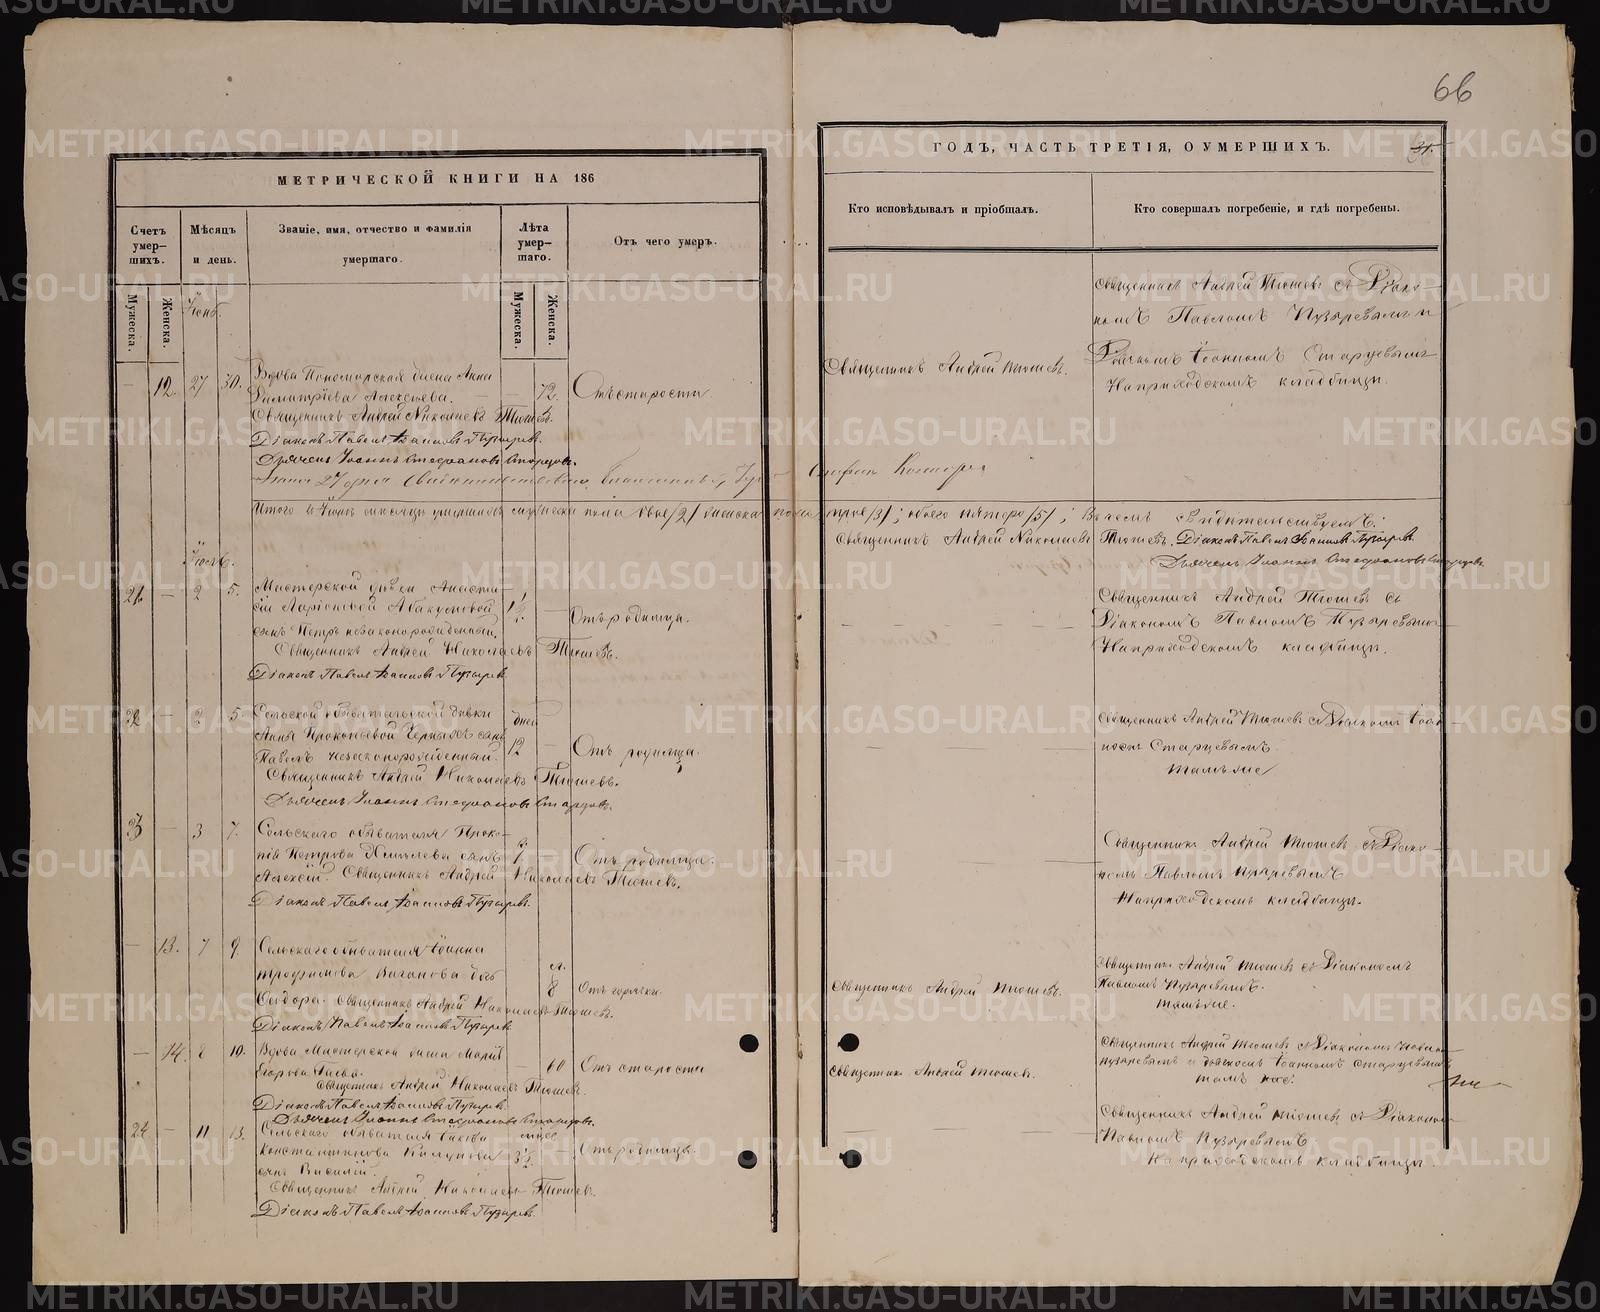 66
МЕТРИЧЕСКОЙ КНИГИ НА 186
ГОДЪ, ЧАСТЬ ТРЕТІЯ, О УМЕРШИХЪ.
Счетъ умер-
шихъ.
Мѣсяцъ
и день.
Званіе, имя, отчество и фамилія
умершаго.
Лѣта
умер-
шаго.
Отъ чего умеръ.
Мужеска.
Женска.
Мужеска.
Женска.
Кто исповѣдывалъ и пріобщалъ.
Кто совершалъ погребеніе, и гдѣ погребены.
12. 27 30. Вдова Пономорская жена Анна
Димитріева Алексѣева. 72. Отъ старости
Священникъ Андрей Николаевъ Тюшевъ.
Діаконъ Павелъ Іоанновъ Пузыревъ.
Дьячекъ Іоаннъ Стефановъ Старцовъ.
Священникъ Андрей Тюшевъ.
Священникъ Андрей Тюшевъ съ Діако-
номъ Павломъ Пузыревымъ и
Дьячкомъ Іоанномъ Старцевымъ
На приходскомъ кладбищѣ.
Итого въ Іюнѣ мѣсяцѣ умершихъ мужеска пола двое /2/ женска пола трое /3/; обоего пятеро /5/; Въ чемъ свидѣтельствуемъ:
Священникъ Андрей Николаевъ Тюшевъ. Діаконъ Павелъ Іоанновъ Пузыревъ.
Дьячекъ Іоаннъ Стефановъ Старцовъ.
Іюль.
21. — 2 5. Мастерской дѣвки Анаста-
сіи Ларіоновой Абакумовой 1½
сынъ Петръ незаконорожденный. Отъ родимца.
Священникъ Андрей Николаевъ Тюшевъ.
Діаконъ Павелъ Іоанновъ Пузыревъ.
Священникъ Андрей Тюшевъ съ
Діакономъ Павломъ Пузыревымъ
На приходскомъ кладбищѣ.
22 — 2 5. Сельской обывательской дѣвки дней
Анны Прокопьевой Черныхъ сынъ 12
Павелъ незаконорожденный. Отъ родимца.
Священникъ Андрей Николаевъ Тюшевъ.
Дьячекъ Іоаннъ Стефановъ Старцовъ.
Священникъ Андрей Тюшевъ съ Дьячкомъ Іоан-
номъ Старцевымъ
тамъ же
23 — 3 7. Сельскаго обывателя Проко-
пія Петрова сынъ 1 Отъ родимца.
Алексѣй. Священникъ Андрей Николаевъ Тюшевъ.
Діаконъ Павелъ Іоанновъ Пузыревъ.
Священникъ Андрей Тюшевъ съ Діако-
номъ Павломъ Пузыревымъ
На приходскомъ кладбищѣ.
— 13. 7 9. Сельскаго обывателя Іоанна
Трофимова Ваганова дочь 8 Отъ горячки
Ѳедора. Священникъ Андрей Николаевъ Тюшевъ.
Діаконъ Павелъ Іоанновъ Пузыревъ.
Священникъ Андрей Тюшевъ.
Священникъ Андрей Тюшевъ съ Діакономъ
Павломъ Пузыревымъ.
тамъ же.
— 14. 8 10. Вдова Мастерская жена Марія
Егорова Гаева. 60 Отъ старости
Священникъ Андрей Николаевъ Тюшевъ.
Діаконъ Павелъ Іоанновъ Пузыревъ.
Дьячекъ Іоаннъ Стефановъ Старцовъ.
Священникъ Андрей Тюшевъ.
Священникъ Андрей Тюшевъ съ Діакономъ Павломъ
Пузыревымъ и Дьячкомъ Іоанномъ Старцевымъ
тамъ же.
24 — 11 13. Сельскаго обывателя Іакова
Константинова 3½ Отъ родимца.
сынъ Василій.
Священникъ Андрей Николаевъ Тюшевъ.
Діаконъ Павелъ Іоанновъ Пузыревъ.
Священникъ Андрей Тюшевъ съ Діакономъ
Павломъ Пузыревымъ
На приходскомъ кладбищѣ.
METRIKI.GASO-URAL.RU